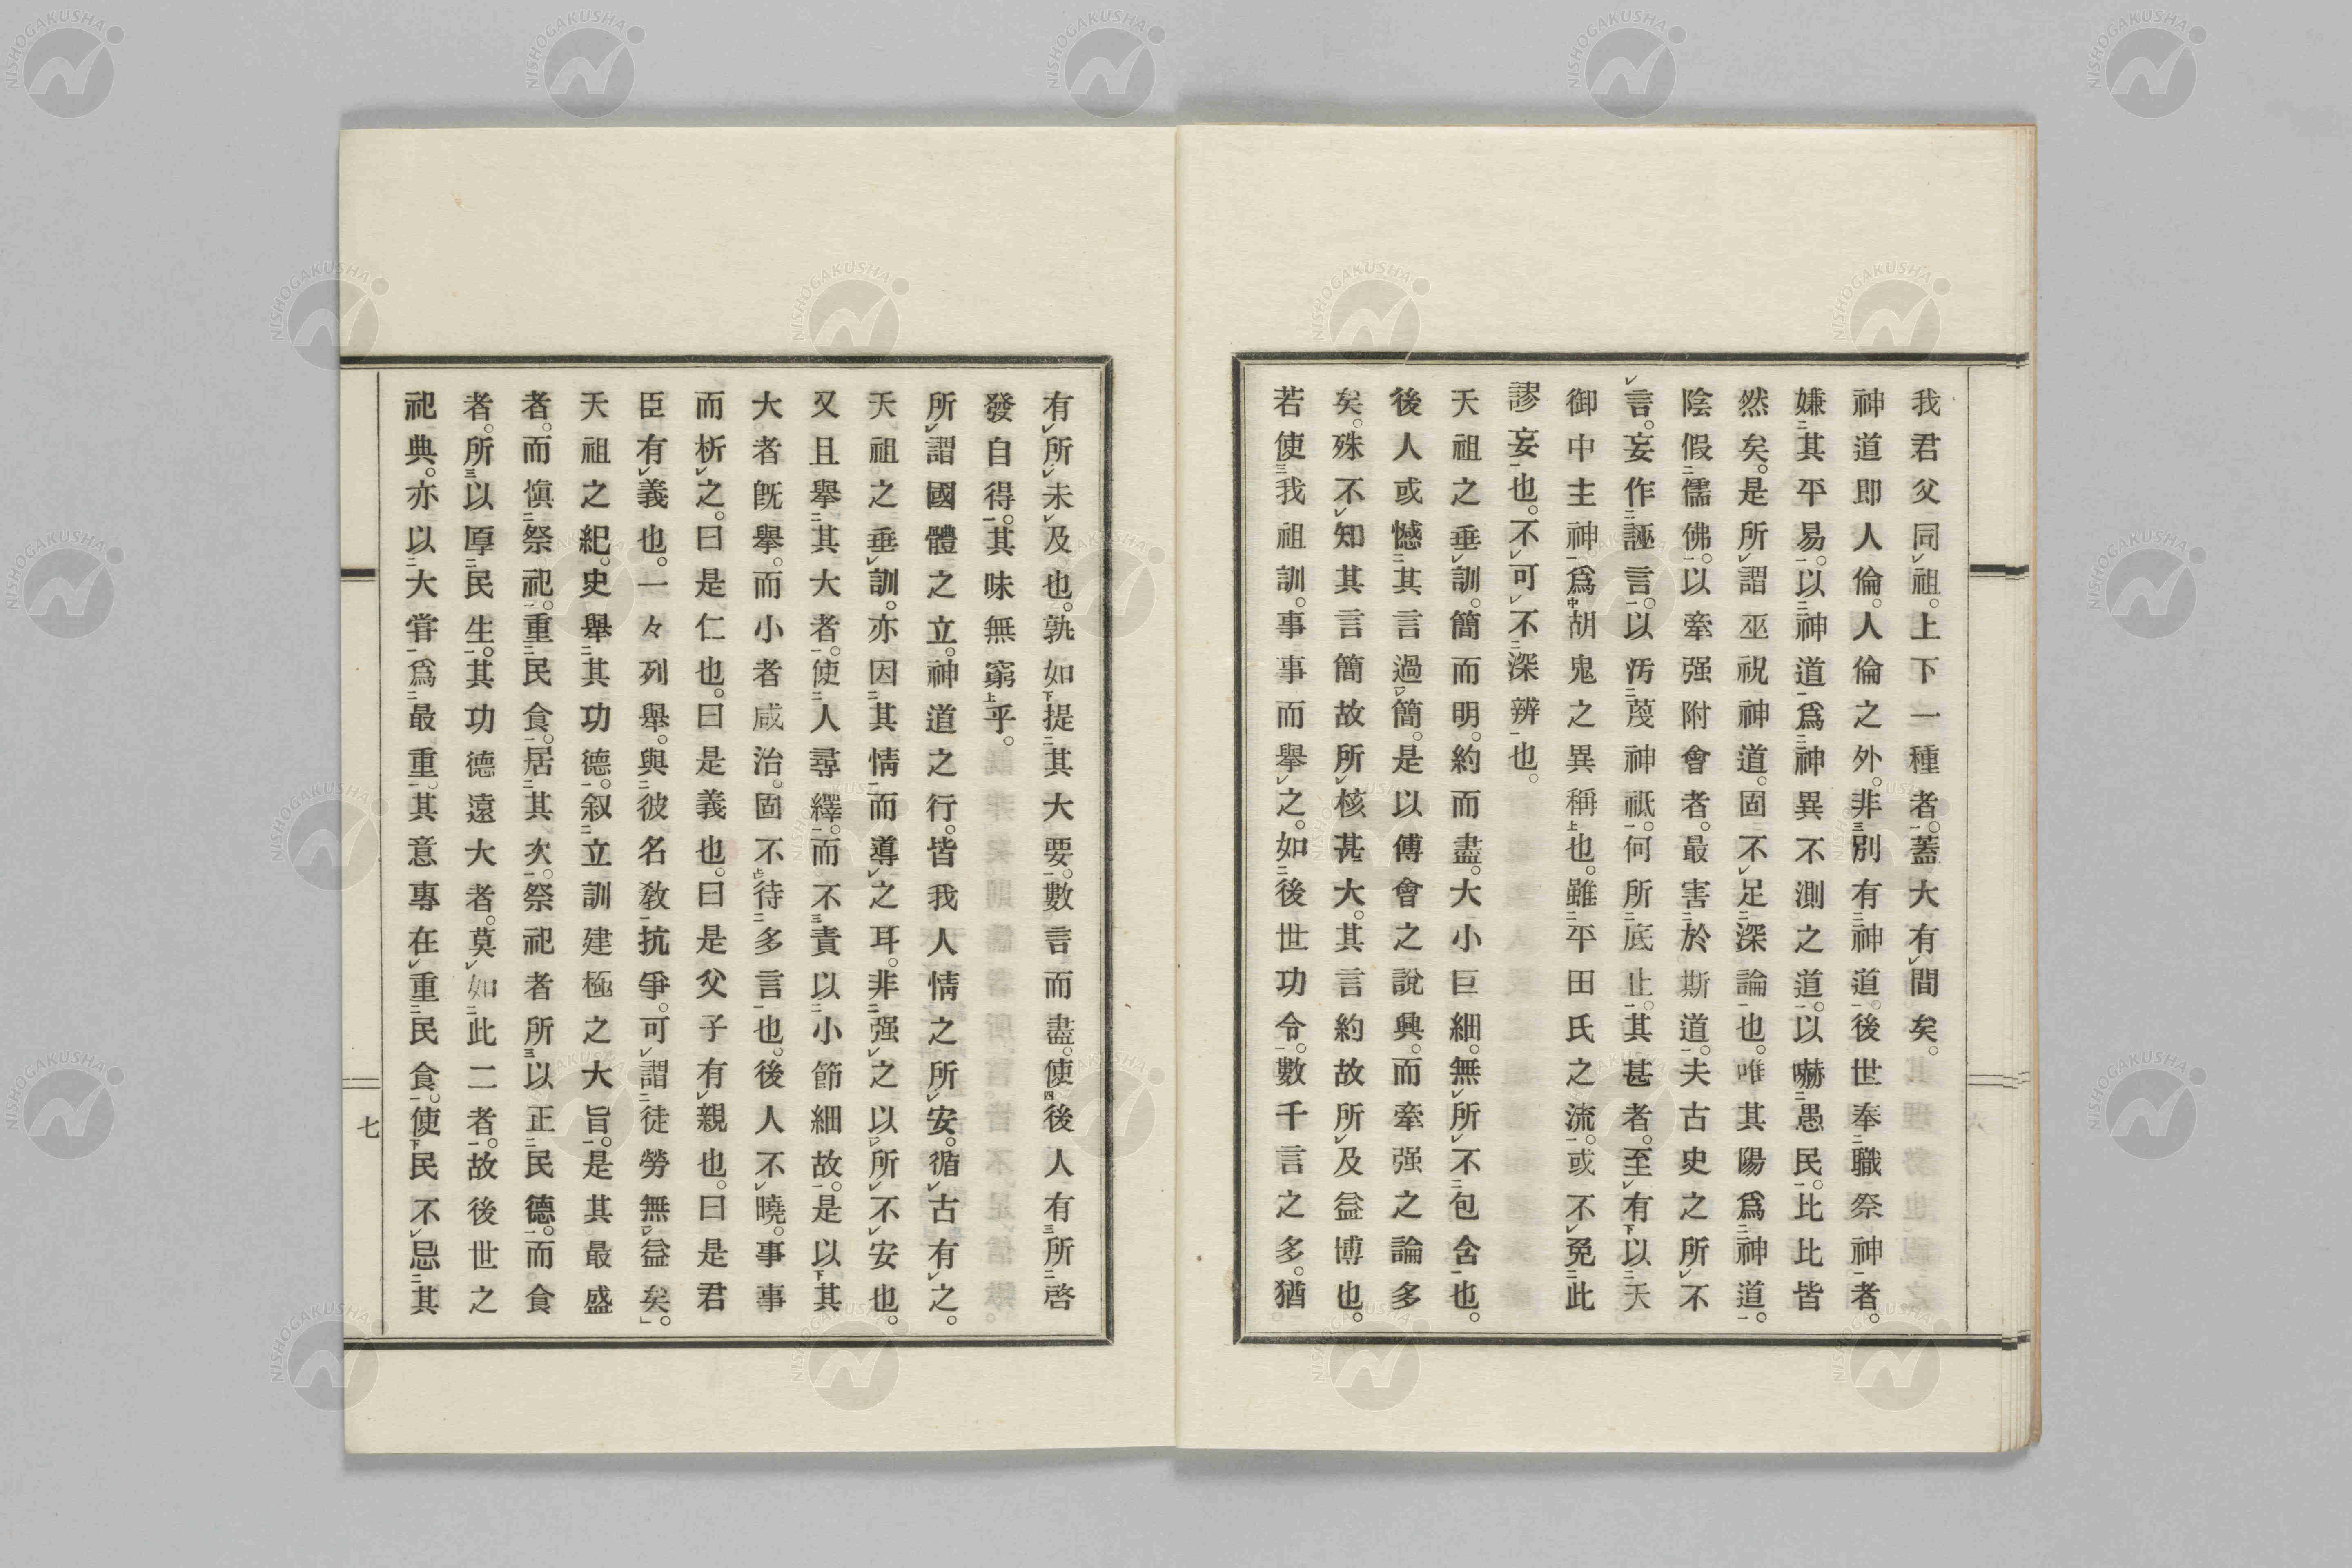 我君父同祖。上下一種者。蓋大有間矣。
神道即人倫。人倫之外。非別有神道。後世奉職祭神者。
嫌其平易。以神道爲神異不測之道。以嚇愚民。比比皆
然矣。是所謂巫祝神道。固不足深論也。唯其陽爲神道。
陰假儒佛。以牽强附會者。最害於斯道。夫古史之所不
言。妄作誣言。以汚蔑神祇。何所底止。其甚者。至有以天
御中主神爲胡鬼之異稱也。雖平田氏之流。或不免此
謬妄也。不可不深辨也。
天祖之垂訓。簡而明。約而盡。大小巨細。無所不包含也。
後人或憾其言過簡。是以傅會之說興。而牽强之論多
矣。殊不知其言簡故所核甚大。其言約故所及益博也。
若使我祖訓。事事而擧之。如後世功令。數千言之多。猶
有所未及也。孰如提其大要。數言而盡。使後人有所啓
發自得。其味無窮乎。
所謂國體之立。神道之行。皆我人情之所安。循古有之。
天祖之垂訓。亦因其情而導之耳。非强之以所不安也。
又且擧其大者。使人尋繹。而不責以小節細故。是以其
大者旣擧。而小者咸治。固不待多言也。後人不曉。事事
而析之。曰是仁也。曰是義也。曰是父子有親也。曰是君
臣有義也。一々列擧。與彼名敎抗爭。可謂徒勞無益矣。」
天祖之紀。史擧其功德。叙立訓建極之大旨。是其最盛
者。而愼祭祀。重民食。居其次。祭祀者所以正民德。而食
者。所以厚民生。其功德遠大者。莫如此二者。故後世之
祀典。亦以大嘗爲最重。其意專在重民食。使民不忌其
七
NISHOGAKUSHA